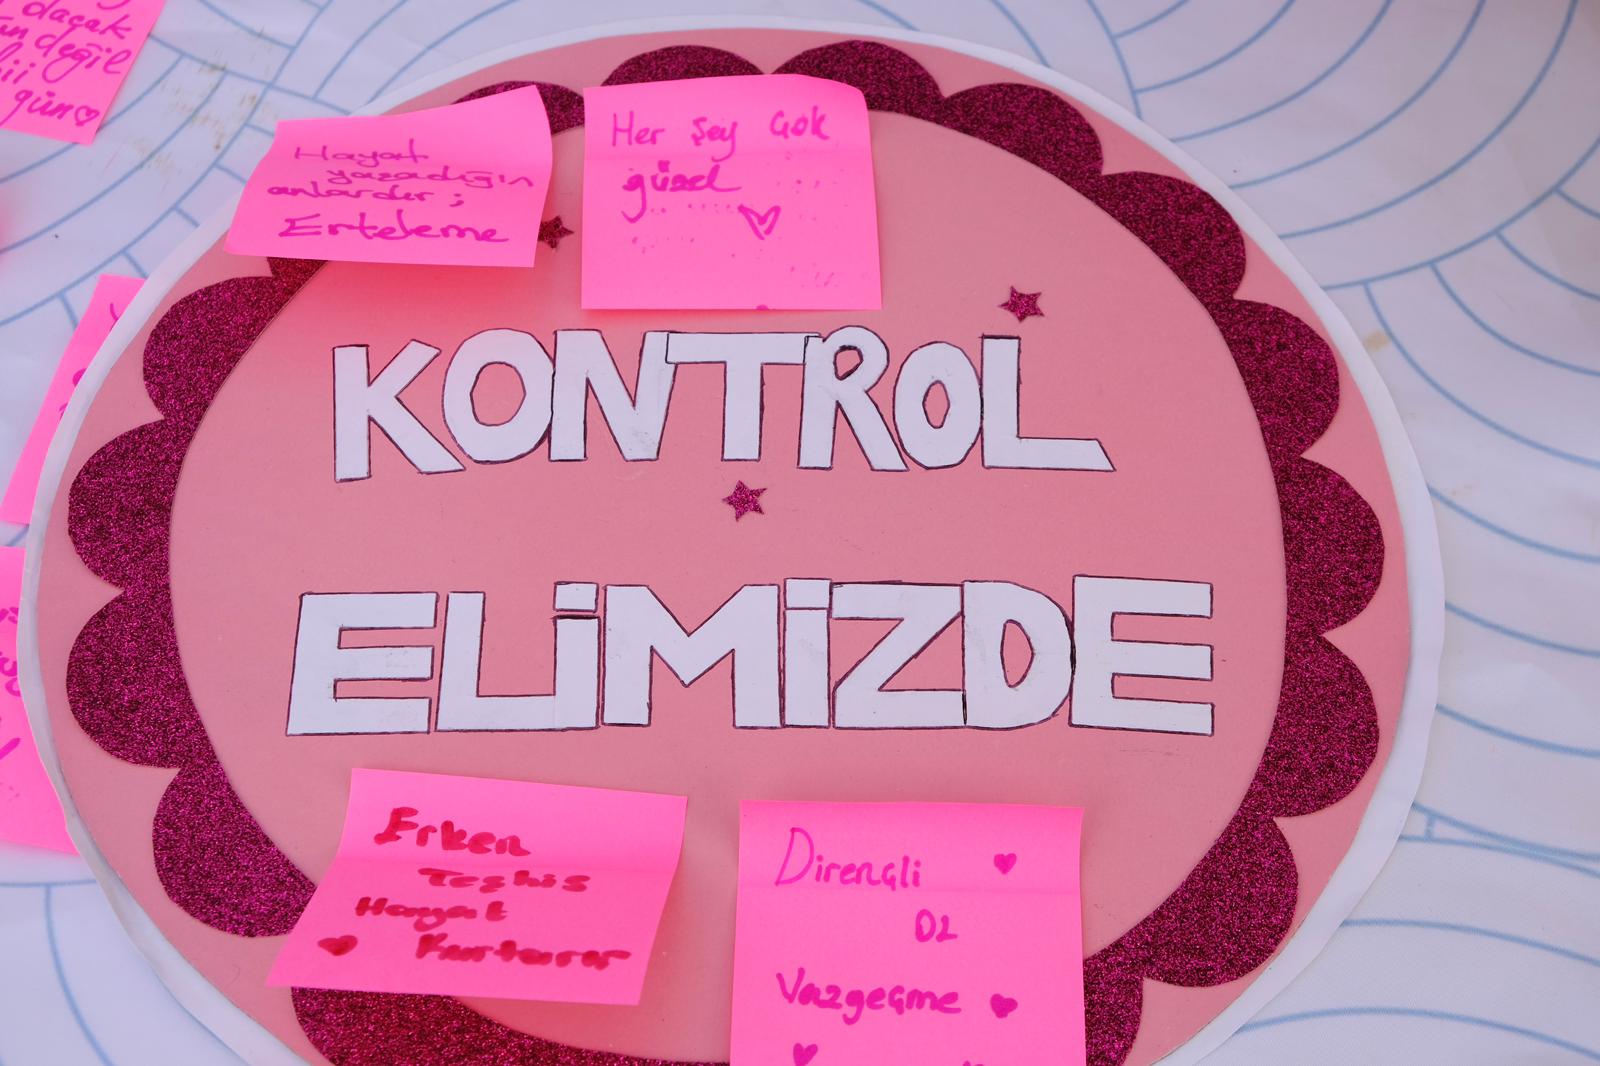 daçak
ün değil
gün
Hayat
yaşadığın
anlardır;
Erteleme
Her şey çok
güzel
KONTROL
ELİMİZDE
Erken
Teşhis
Hayat
Kurtarır
Dirençli
OL
Vazgeçme